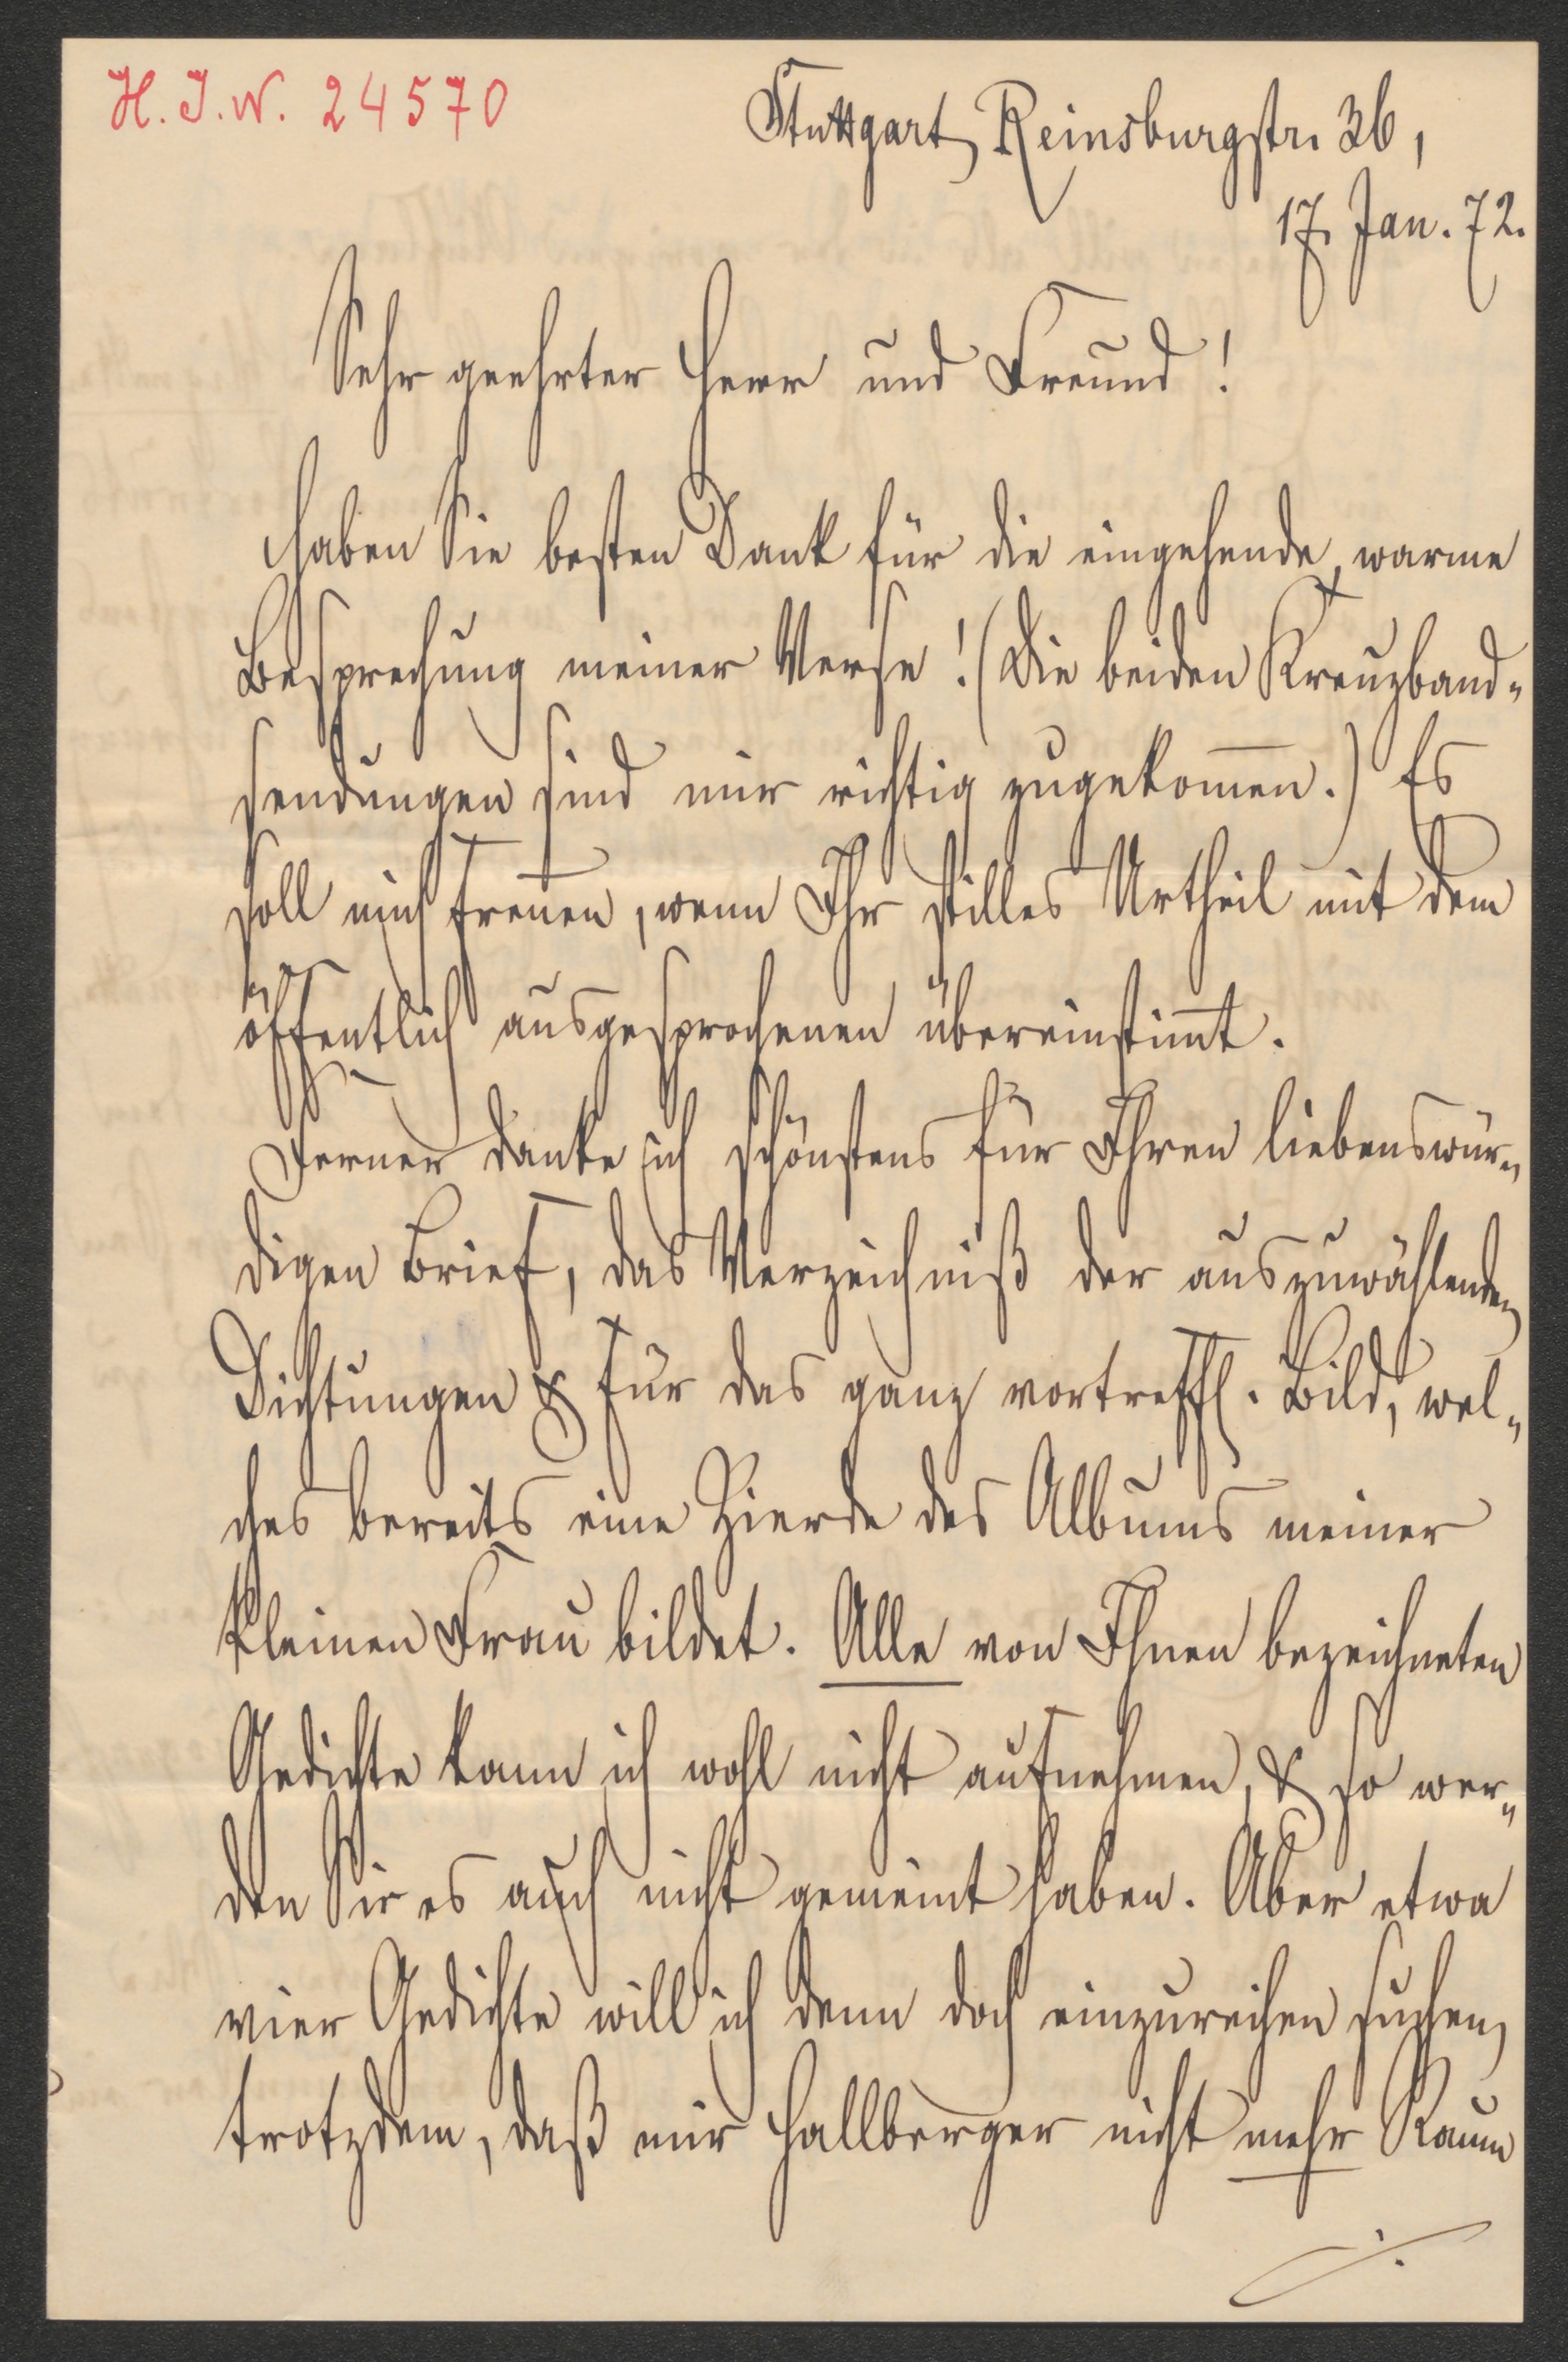 H. I. N. 24570
Stuttgart, Reinsburgstr. 36,
17. Jan. 72.
Sehr geehrter Herr und Freund!
Haben Sie besten Dank für die eingehende, warme
Besprechung meiner Verse! (Die beiden Kreuzband-
sendungen sind mir richtig zugekom̅en.) Es
soll mich freuen, wenn Ihr stilles Urtheil mit dem
öffentlich ausgesprochenen übereinstim̅t.
Ferner danke ich schönstens für Ihren liebenswür-
digen Brief, das Verzeichniß der auszuwählenden
Dichtungen & für das ganz vortreffl. Bild, wel-
ches bereits eine Zierde des Albums meiner
kleinen Frau bildet. Alle von Ihnen bezeichneten
Gedichte kann ich wohl nicht aufnehmen, & so wer-
den Sie es auch nicht gemeint haben. Aber etwa
vier Gedichte will ich denn doch einzureihen suchen,
trotzdem, daß mir Hallberger nicht mehr Raum